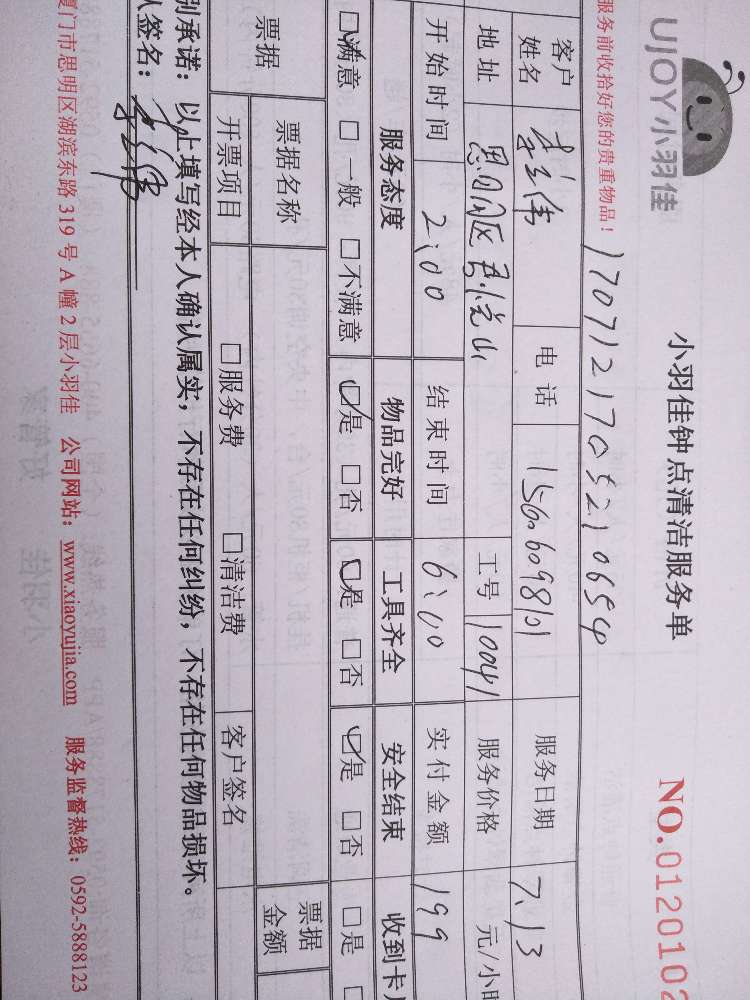 UJOY小羽佳
小羽佳钟点清洁服务单
NO.0120102
服务前收拾好您的贵重物品！
1707121705210654
客户姓名 电话 服务日期 7.13
地址 工号 10041 服务价格 元/小时
开始时间 2:00 结束时间 6:00 实付金额 199
服务态度 物品完好 工具齐全 安全结束 收到卡
☑满意 □一般 □不满意 ☑是 □否 ☑是 □否 ☑是 □否 □是
票据 票据名称 票据金额
开票项目 □服务费 □清洁费 客户签名
别承诺：以上填写经本人确认属实，不存在任何纠纷，不存在任何物品损坏。
人签名：
厦门市思明区湖滨东路319号A幢2层小羽佳 公司网站：www.xiaoyujia.com 服务监督热线：0592-5888123